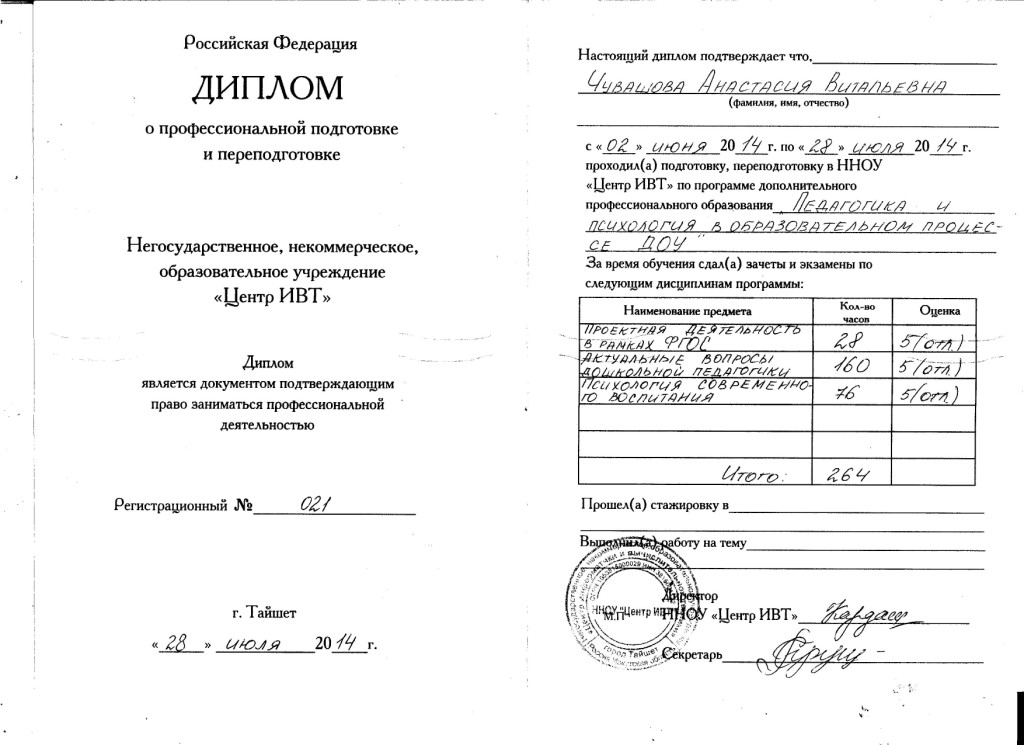 Российская Федерация
ДИПЛОМ
о профессиональной подготовке
и переподготовке
Негосударственное, некоммерческое,
образовательное учреждение
«Центр ИВТ»
Диплом
является документом подтверждающим
право заниматься профессиональной
деятельностью
Регистрационный № 021
г. Тайшет
« 28 » июля 2014 г.
Настоящий диплом подтверждает что,
Чувашова Анастасия Витальевна
(фамилия, имя, отчество)
с « 02 » июня 2014 г. по « 28 » июля 2014 г.
проходил(а) подготовку, переподготовку в ННОУ
«Центр ИВТ» по программе дополнительного
профессионального образования „Педагогика и
психология в образовательном процес-
се ДОУ"
За время обучения сдал(а) зачеты и экзамены по
следующим дисциплинам программы:
Наименование предмета Кол-во часов Оценка
Проектная деятельность
в рамках ФГОС 28 5(отл.)
Актуальные вопросы
дошкольной педагогики 160 5(отл.)
Психология современно-
го воспитания 76 5(отл.)
Итого: 264
Прошел(а) стажировку в
Выполнил(а) работу на тему
Директор
ННОУ «Центр ИВТ»
М.П.
ННОУ "Центр ИВТ"
город Тайшет
Секретарь